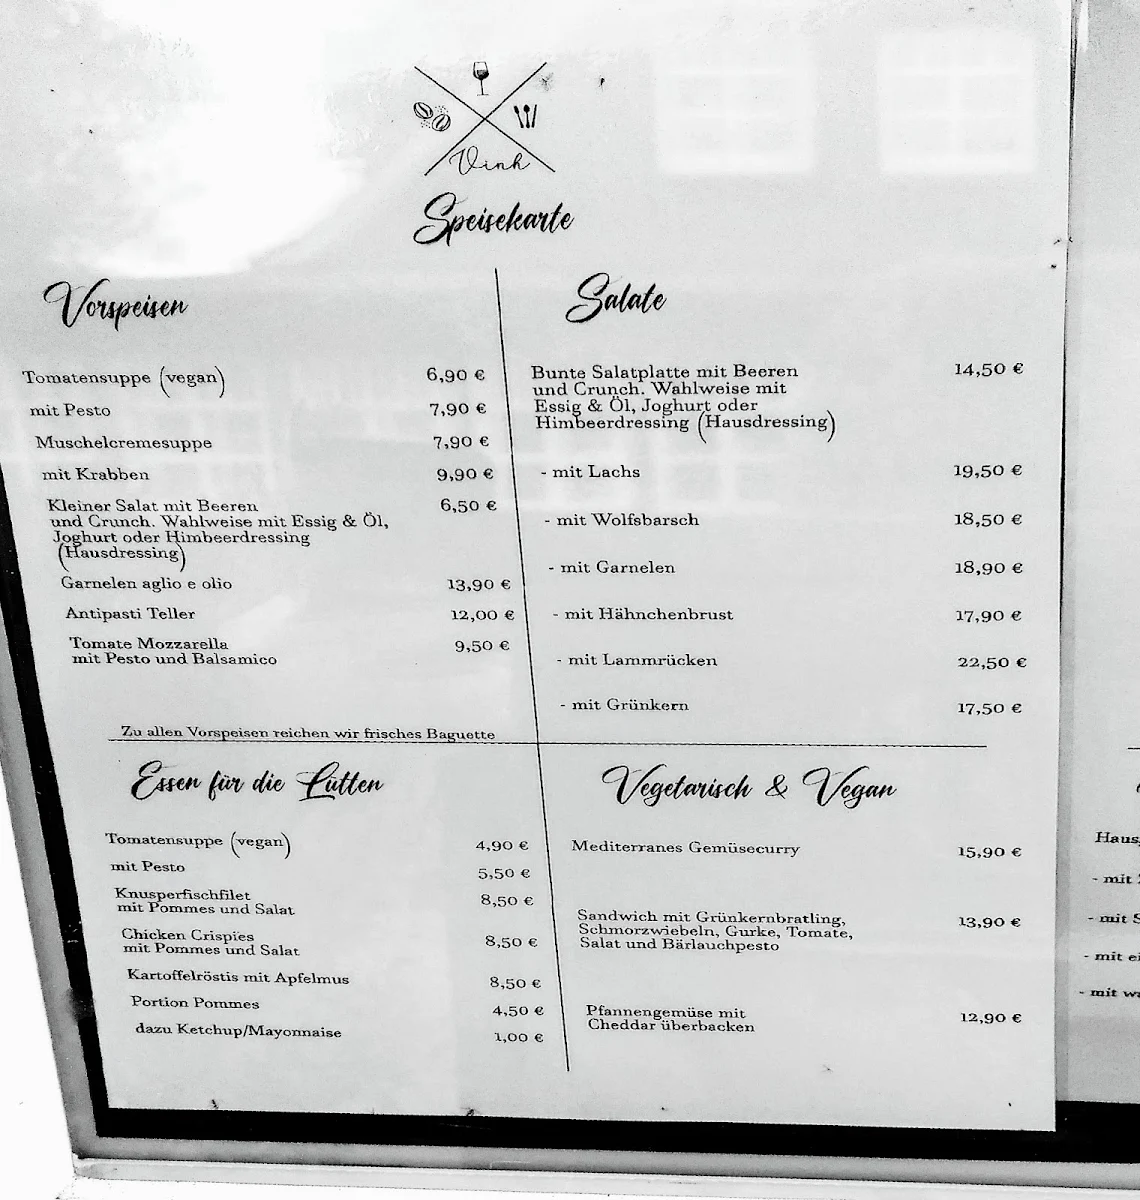 Vink
Speisekarte
Vorspeisen
Tomatensuppe (vegan) 6,90 €
mit Pesto 7,90 €
Muschelcremesuppe 7,90 €
mit Krabben 9,90 €
Kleiner Salat mit Beeren 6,50 €
und Crunch. Wahlweise mit Essig & Öl,
Joghurt oder Himbeerdressing
(Hausdressing)
Garnelen aglio e olio 13,90 €
Antipasti Teller 12,00 €
Tomate Mozzarella 9,50 €
mit Pesto und Balsamico
Zu allen Vorspeisen reichen wir frisches Baguette
Salate
Bunte Salatplatte mit Beeren 14,50 €
und Crunch. Wahlweise mit
Essig & Öl, Joghurt oder
Himbeerdressing (Hausdressing)
- mit Lachs 19,50 €
- mit Wolfsbarsch 18,50 €
- mit Garnelen 18,90 €
- mit Hähnchenbrust 17,90 €
- mit Lammrücken 22,50 €
- mit Grünkern 17,50 €
Essen für die Lütten
Tomatensuppe (vegan) 4,90 €
mit Pesto 5,50 €
Knusperfischfilet 8,50 €
mit Pommes und Salat
Chicken Crispies 8,50 €
mit Pommes und Salat
Kartoffelröstis mit Apfelmus 8,50 €
Portion Pommes 4,50 €
dazu Ketchup/Mayonnaise 1,00 €
Vegetarisch & Vegan
Mediterranes Gemüsecurry 15,90 €
Sandwich mit Grünkernbratling, 13,90 €
Schmorzwiebeln, Gurke, Tomate,
Salat und Bärlauchpesto
Pfannengemüse mit 12,90 €
Cheddar überbacken
- mit
- mit
- mit
- mit